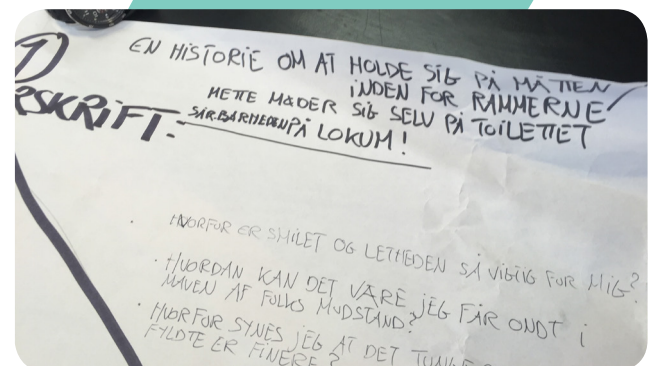 1)
EN HISTORIE OM AT HOLDE SIG PÅ MÅTTEN/
INDEN FOR RAMMERNE
RSKRIFT:
METTE MØDER SIG SELV PÅ TOILETTET
SÅRBARHEDEN PÅ LOKUM!
· HVORFOR ER SMILET OG LETHEDEN SÅ VIGTIG FOR MIG?
· HVORDAN KAN DET VÆRE JEG FÅR ONDT I
MAVEN AF FOLKS MODSTAND?
· HVORFOR SYNES JEG AT DET TUNGE
FYLDTE ER FINERE?